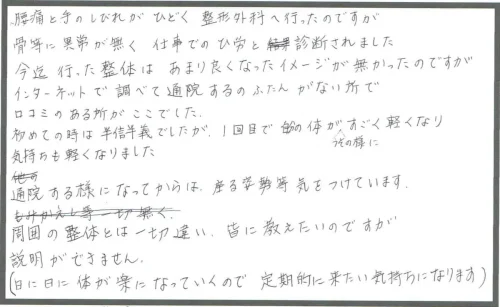 腰痛と手のしびれが ひどく 整形外科へ行ったのですが
骨等に異常が無く 仕事での ひ労と 診断されました
今迄 行った整体は あまり良くなったイメージが無かったのですが
インターネットで 調べて 通院するのふたんがない所で
口コミのある所が ここでした.
初めての時は 半信半義でしたが、1回目で 体がうその様にすごく軽くなり
気持ちも軽くなりました
通院する様になってからは、座る姿勢等 気をつけています.
もみかえし等一切無く.
周囲の整体とは一切違い. 皆に教えたいのですが
説明ができません.
(日に日に体が楽になっていくので 定期的に来たい気持ちになります)